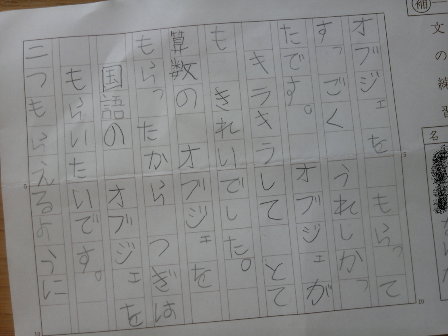 補
文の練習
名
オブジェを もらって
すっごく うれしかっ
たです。 オブジェが
キラキラして とて
も きれいでした。
算数の オブジェを
もらったから つぎは
国語の オブジェを
もらいたいです。
二つもらえるように